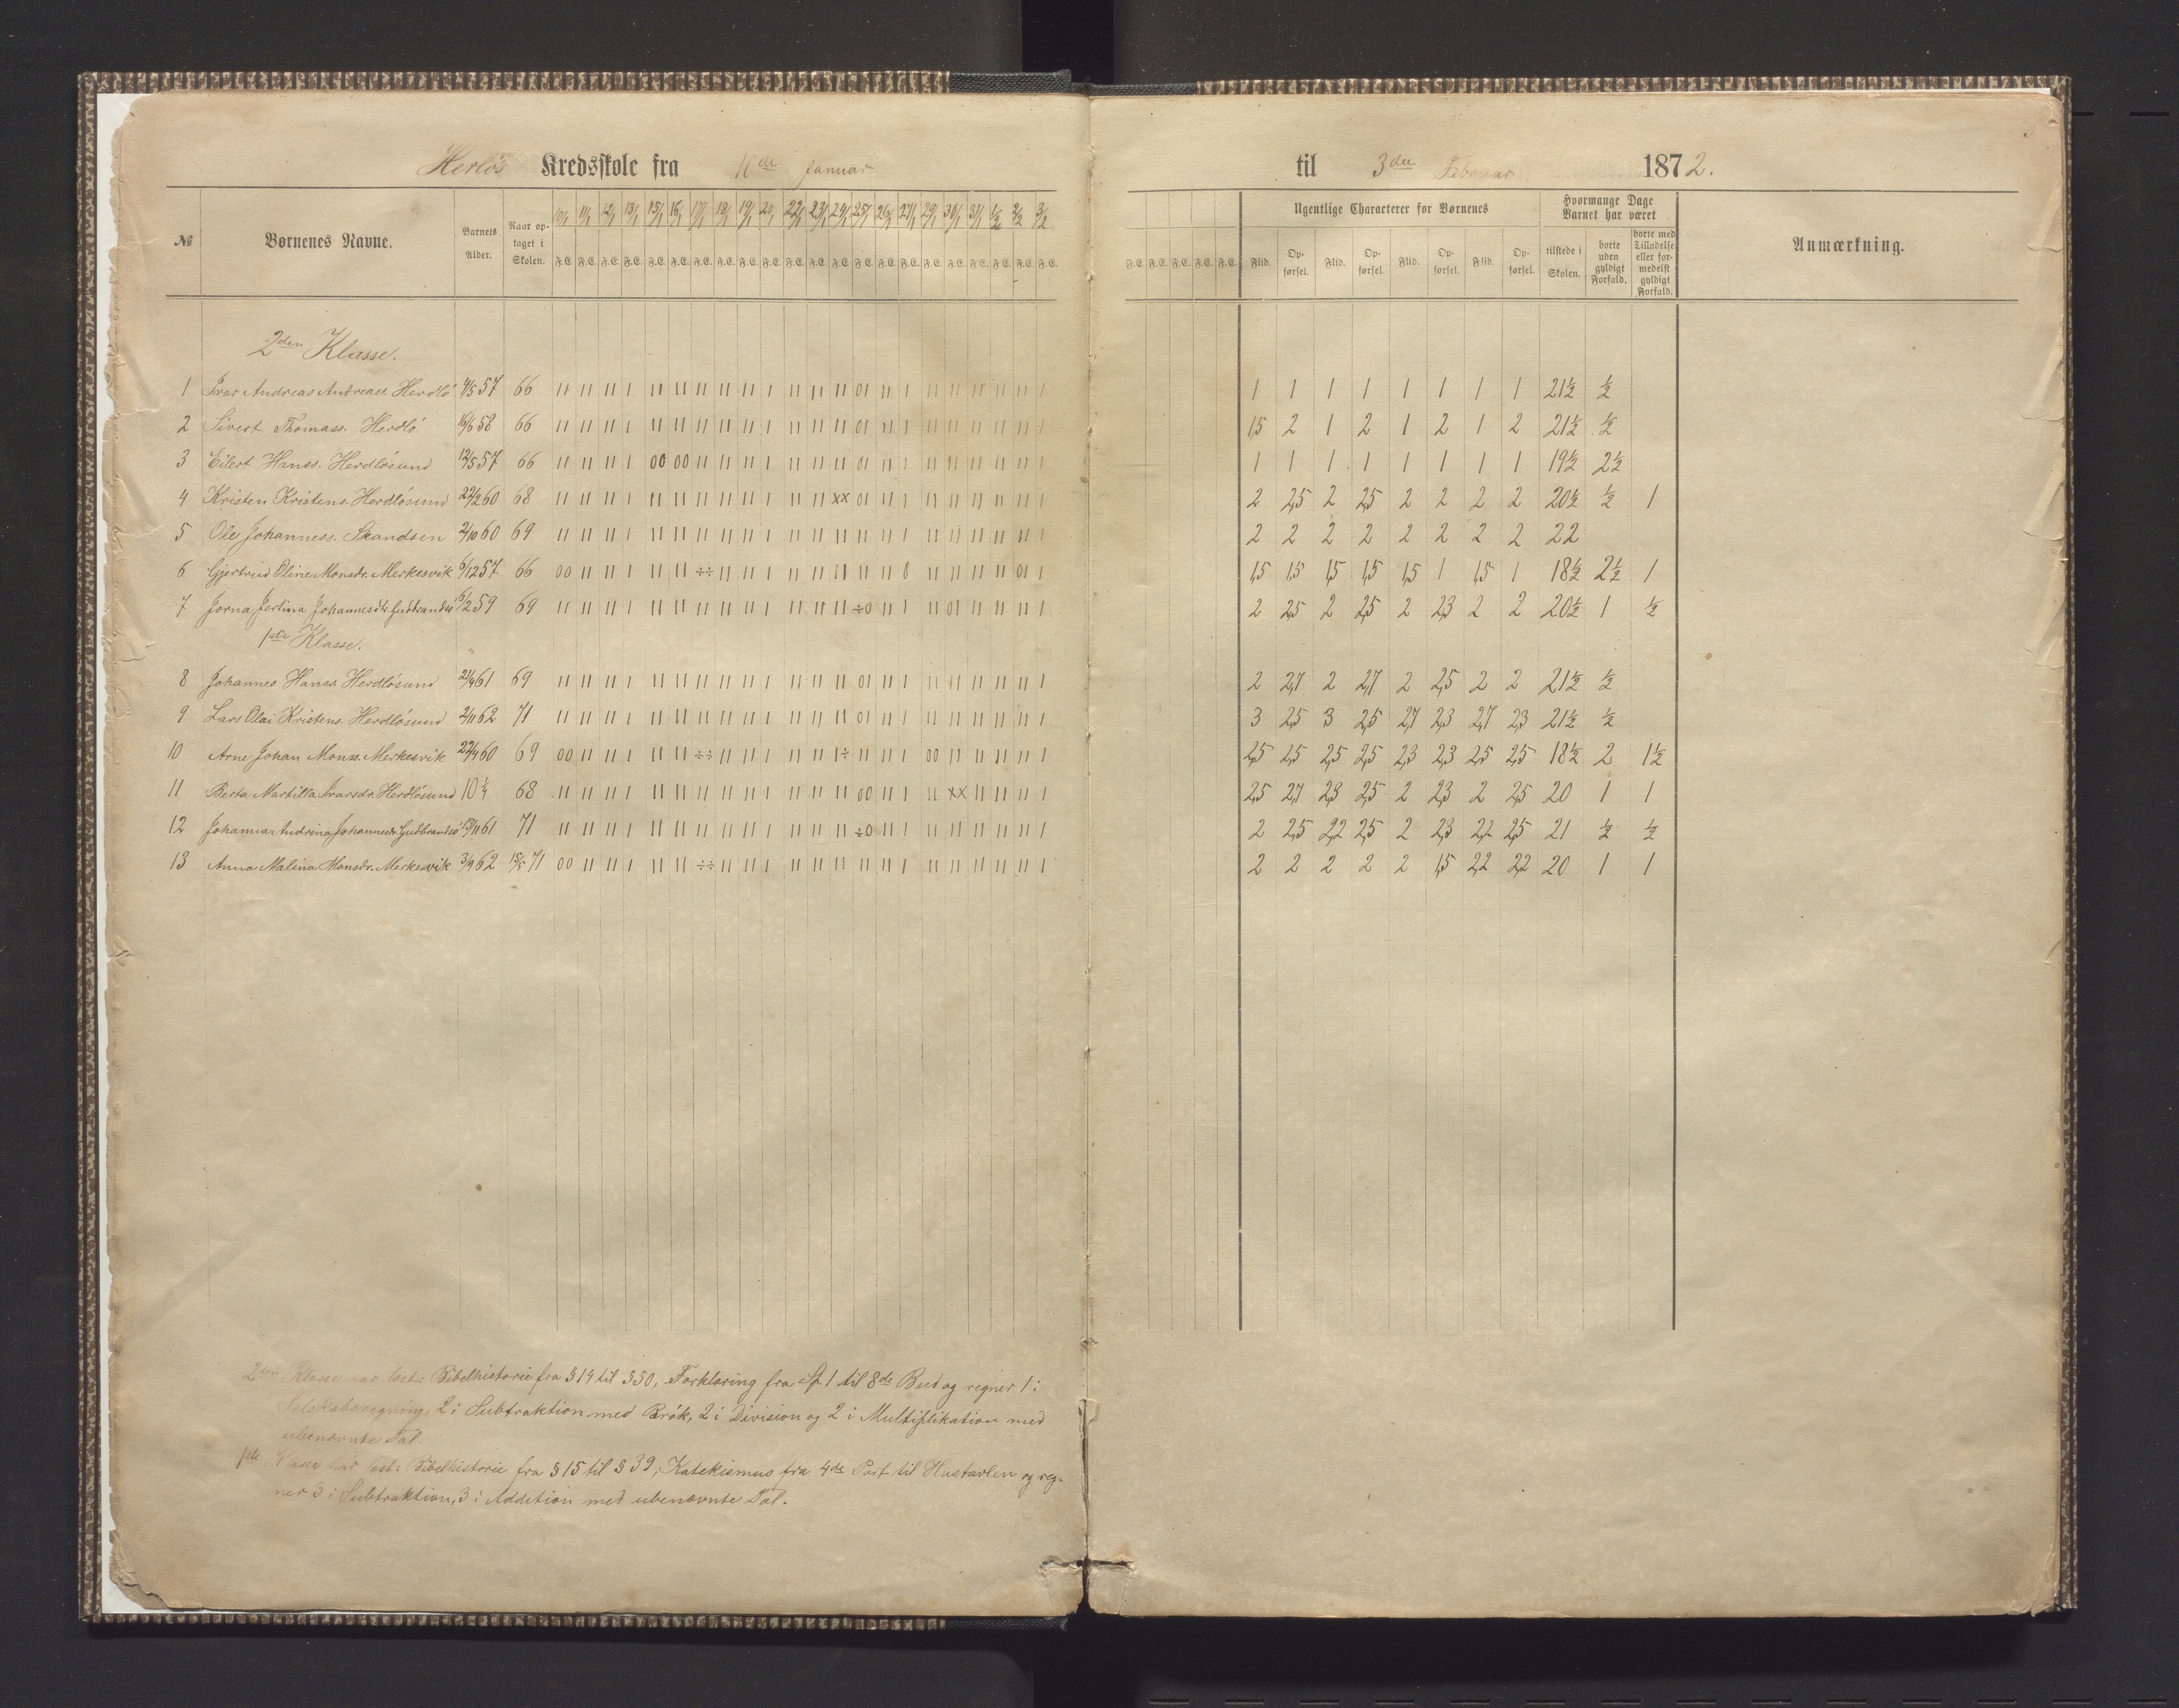 Herlö Kredsskole fra 10de Januar til 3die Februar 1872.
№ Børnenes Navne. Barnets Alder. Naar optaget i Skolen. 10/1 11/1 12/1 13/1 15/1 16/1 17/1 18/1 19/1 20/1 22/1 23/1 24/1 25/1 26/1 27/1 29/1 30/1 31/1 1/2 2/2 3/2 Ugentlige Characterer for Børnenes Hvormange Dage Barnet har været Anmærkning.
F.E. F.E. F.E. F.E. F.E. F.E. F.E. F.E. F.E. F.E. F.E. F.E. F.E. F.E. F.E. F.E. F.E. F.E. F.E. F.E. F.E. F.E. F.E. F.E. F.E. F.E. F.E. Flid. Opførsel. Flid. Opførsel. Flid. Opførsel. Flid. Opførsel. tilstede i Skolen. borte uden gyldigt Forfald. borte med Tilladelse eller formedelst gyldigt Forfald.
2den Klasse.
1 Ivar Andreas Andreass. Herdlö 4/5 57 66 11 11 11 1 11 11 11 11 11 1 11 11 11 01 11 1 11 11 11 11 11 1 1 1 1 1 1 1 1 1 21½ ½
2 Sivert Thomass. Herdlö 16/6 58 66 11 11 11 1 11 11 11 11 11 1 11 11 11 01 11 1 11 11 11 11 11 1 1,5 2 1 2 1 2 1 2 21½ ½
3 Eilert Hanss. Herdlösund 12/5 57 66 11 11 11 1 00 00 11 11 11 1 11 11 11 01 11 1 11 11 11 11 11 1 1 1 1 1 1 1 1 1 19½ 2½
4 Kristen Kristens. Herdlösund 29/2 60 68 11 11 11 1 11 11 11 11 11 1 11 11 xx 01 11 1 11 11 11 11 11 1 2 2,5 2 2,5 2 2 2 2 20½ ½ 1
5 Ole Johanness. Skandsen 2/10 60 69 11 11 11 1 11 11 11 11 11 1 11 11 11 11 11 1 11 11 11 11 11 1 2 2 2 2 2 2 2 2 22
6 Gjertrud Oline Monsdr. Merkesvik 6/12 57 66 00 11 11 1 11 11 ÷÷ 11 11 1 11 11 11 11 11 0 11 11 11 11 01 1 1,5 1,5 1,5 1,5 1,5 1 1,5 1 18½ 2½ 1
7 Jorna Jertina Johannesdtr. Gudbrandsö 5/2 59 69 11 11 11 1 11 11 11 11 11 1 11 11 11 ÷0 11 1 11 01 11 11 11 1 2 2,5 2 2,5 2 2,3 2 2 20½ 1 ½
1ste Klasse.
8 Johannes Hanss. Herdlösund 21/4 61 69 11 11 11 1 11 11 11 11 11 1 11 11 11 01 11 1 11 11 11 11 11 1 2 2,7 2 2,7 2 2,5 2 2 21½ ½
9 Lars Olai Kristens. Herdlösund 2/11 62 71 11 11 11 1 11 11 11 11 11 1 11 11 11 01 11 1 11 11 11 11 11 1 3 2,5 3 2,5 2,7 2,3 2,7 2,3 21½ ½
10 Arne Johan Monss. Merkesvik 22/4 60 69 00 11 11 1 11 11 ÷÷ 11 11 1 11 11 1÷ 11 11 1 00 11 11 11 11 1 2,5 2,5 2,5 2,5 2,3 2,3 2,5 2,5 18½ 2 1½
11 Berta Martilla Ivarsdr. Herdlösund 10¼ 68 11 11 11 1 11 11 11 11 11 1 11 11 11 00 11 1 11 xx 11 11 11 1 2,5 2,7 2,3 2,5 2 2,3 2 2,5 20 1 1
12 Johanna Andrina Johannesdr. Gudbrandsö 19/11 61 71 11 11 11 1 11 11 11 11 11 1 11 11 11 ÷0 11 1 11 11 11 11 11 1 2 2,5 2,2 2,5 2 2,3 2,2 2,5 21 ½ ½
13 Anna Malina Monsdr. Merkesvik 3/9 62 15/5 71 00 11 11 1 11 11 ÷÷ 11 11 1 11 11 11 11 11 1 11 11 11 11 11 1 2 2 2 2 2 1,5 2,2 2,2 20 1 1
2den Klasse har læst: Bibelhistorie fra § 14 til § 50, Forklaring fra Sp. 1 til 8de Bud og regner 1 i
Selskabsregning, 2 i Subtraktion med Brök, 2 i Division og 2 i Multiplikation med
ubenævnte Tal.
1ste Klasse har læst: Bibelhistorie fra § 15 til § 39, Katekismus fra 4de Part til Hustavlen og reg-
ner 3 i Subtraktion, 3 i Addition med ubenævnte Tal.